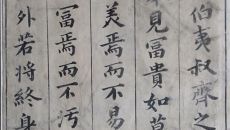 伯夷叔齊之
見冨貴如
美焉而不易
冨焉而不污
外若將終身